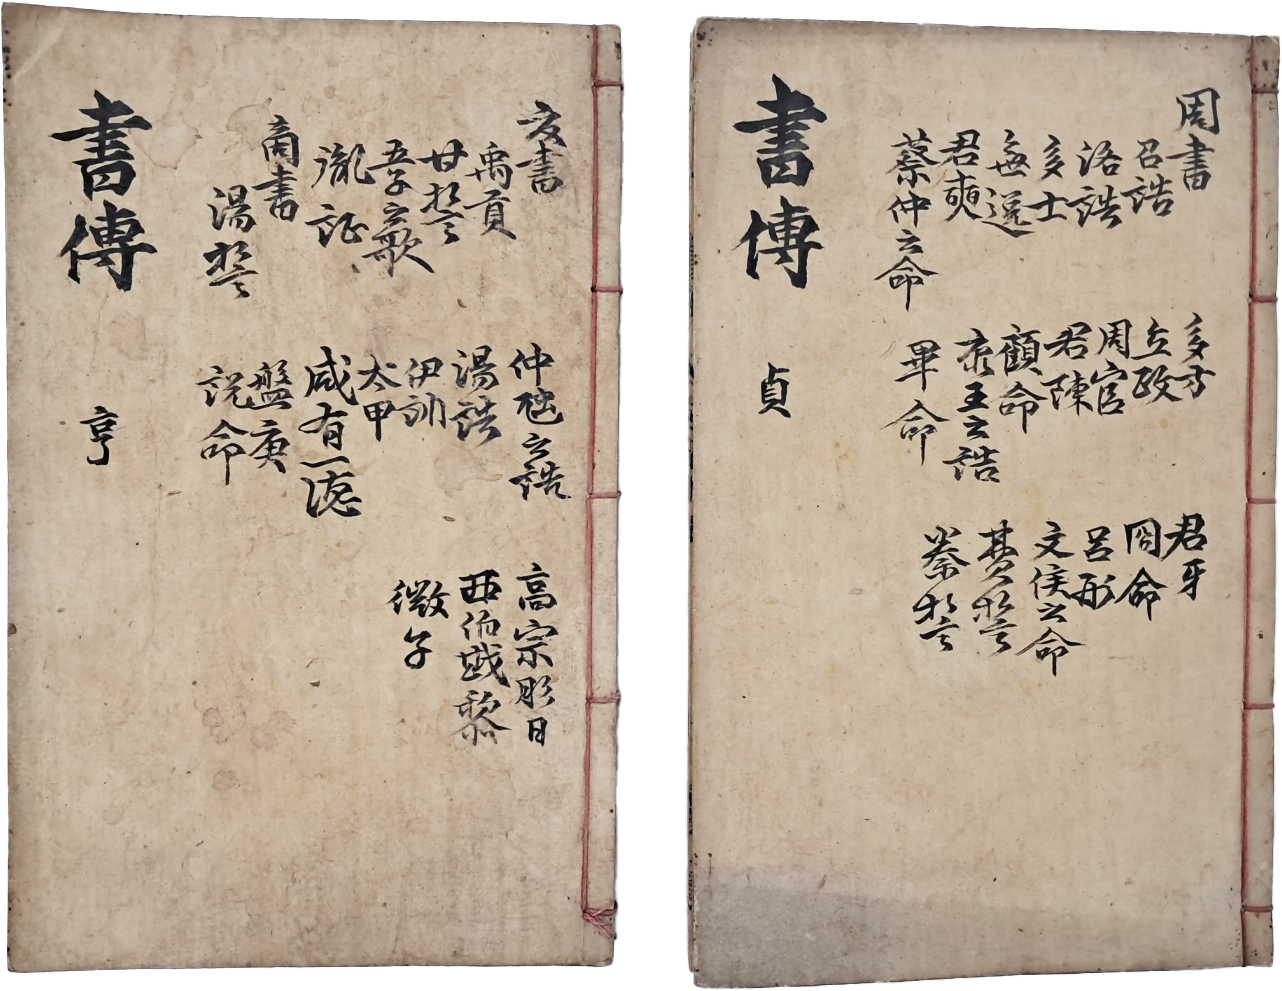 夏書
禹貢
甘誓
五子之歌
胤征
商書
湯誓
仲虺之誥
湯誥
伊訓
太甲
咸有一德
盤庚
說命
高宗肜日
西伯戡黎
微子
書傳
亨
周書
召誥
洛誥
多士
無逸
君奭
蔡仲之命
多方
立政
周官
君陳
顧命
康王之誥
畢命
君牙
冏命
呂刑
文侯之命
費誓
秦誓
書傳
貞